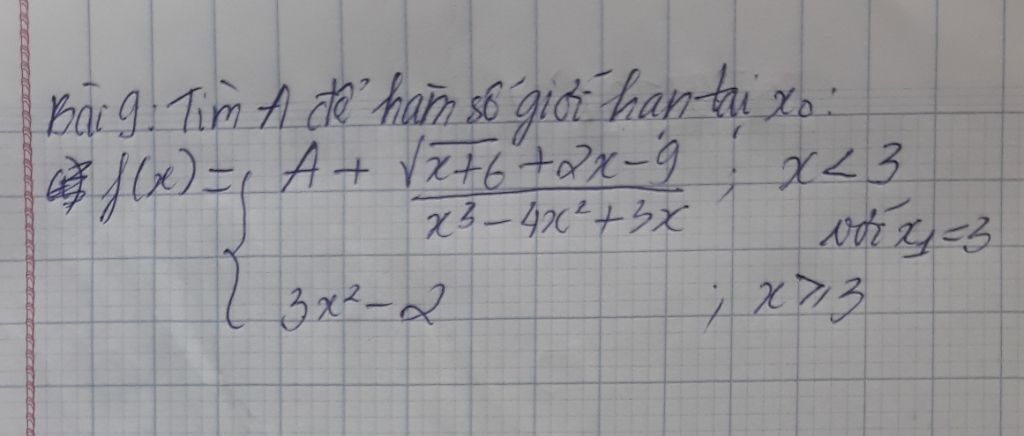 Bài 9: Tìm A để hàm số giới hạn tại x₀:
f(x) = { A + (√(x+6) + 2x - 9)/(x³ - 4x² + 3x) ; x < 3
với x₁ = 3
3x² - 2 ; x ⩾ 3